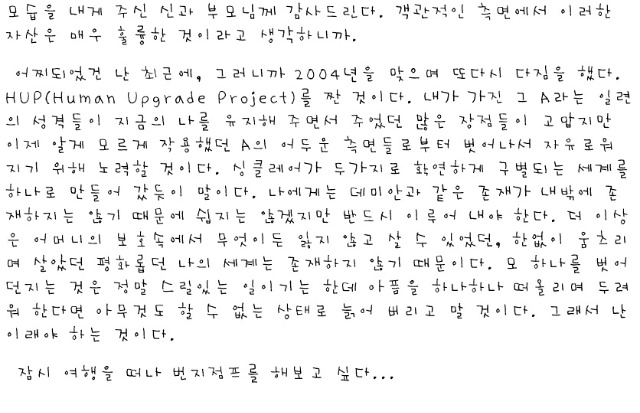 모습을 내게 주신 신과 부모님께 감사드린다. 객관적인 측면에서 이러한
자산은 매우 훌륭한 것이라고 생각하니까.
어찌되었건 난 최근에, 그러니까 2004년을 맞으며 또다시 다짐을 했다.
HUP(Human Upgrade Project)를 짠 것이다. 내가 가진 그 A라는 일련
의 성격들이 지금의 나를 유지해 주면서 주었던 많은 장점들이 고맙지만
이제 알게 모르게 작용했던 A의 어두운 측면들로부터 벗어나서 자유로워
지기 위해 노력할 것이다. 싱클레어가 두가지로 확연하게 구별되는 세계를
하나로 만들어 갔듯이 말이다. 나에게는 데미안과 같은 존재가 내밖에 존
재하지는 않기 때문에 쉽지는 않겠지만 반드시 이루어 내야 한다. 더 이상
은 어머니의 보호속에서 무엇이든 잃지 않고 살 수 있었던, 한없이 움츠리
며 살았던 평화롭던 나의 세계는 존재하지 않기 때문이다. 모 하나를 벗어
던지는 것은 정말 스릴있는 일이기는 한데 아픔을 하나하나 떠올리며 두려
워 한다면 아무것도 할 수 없는 상태로 늙어 버리고 말 것이다. 그래서 난
이래야 하는 것이다.
잠시 여행을 떠나 번지점프를 해보고 싶다...